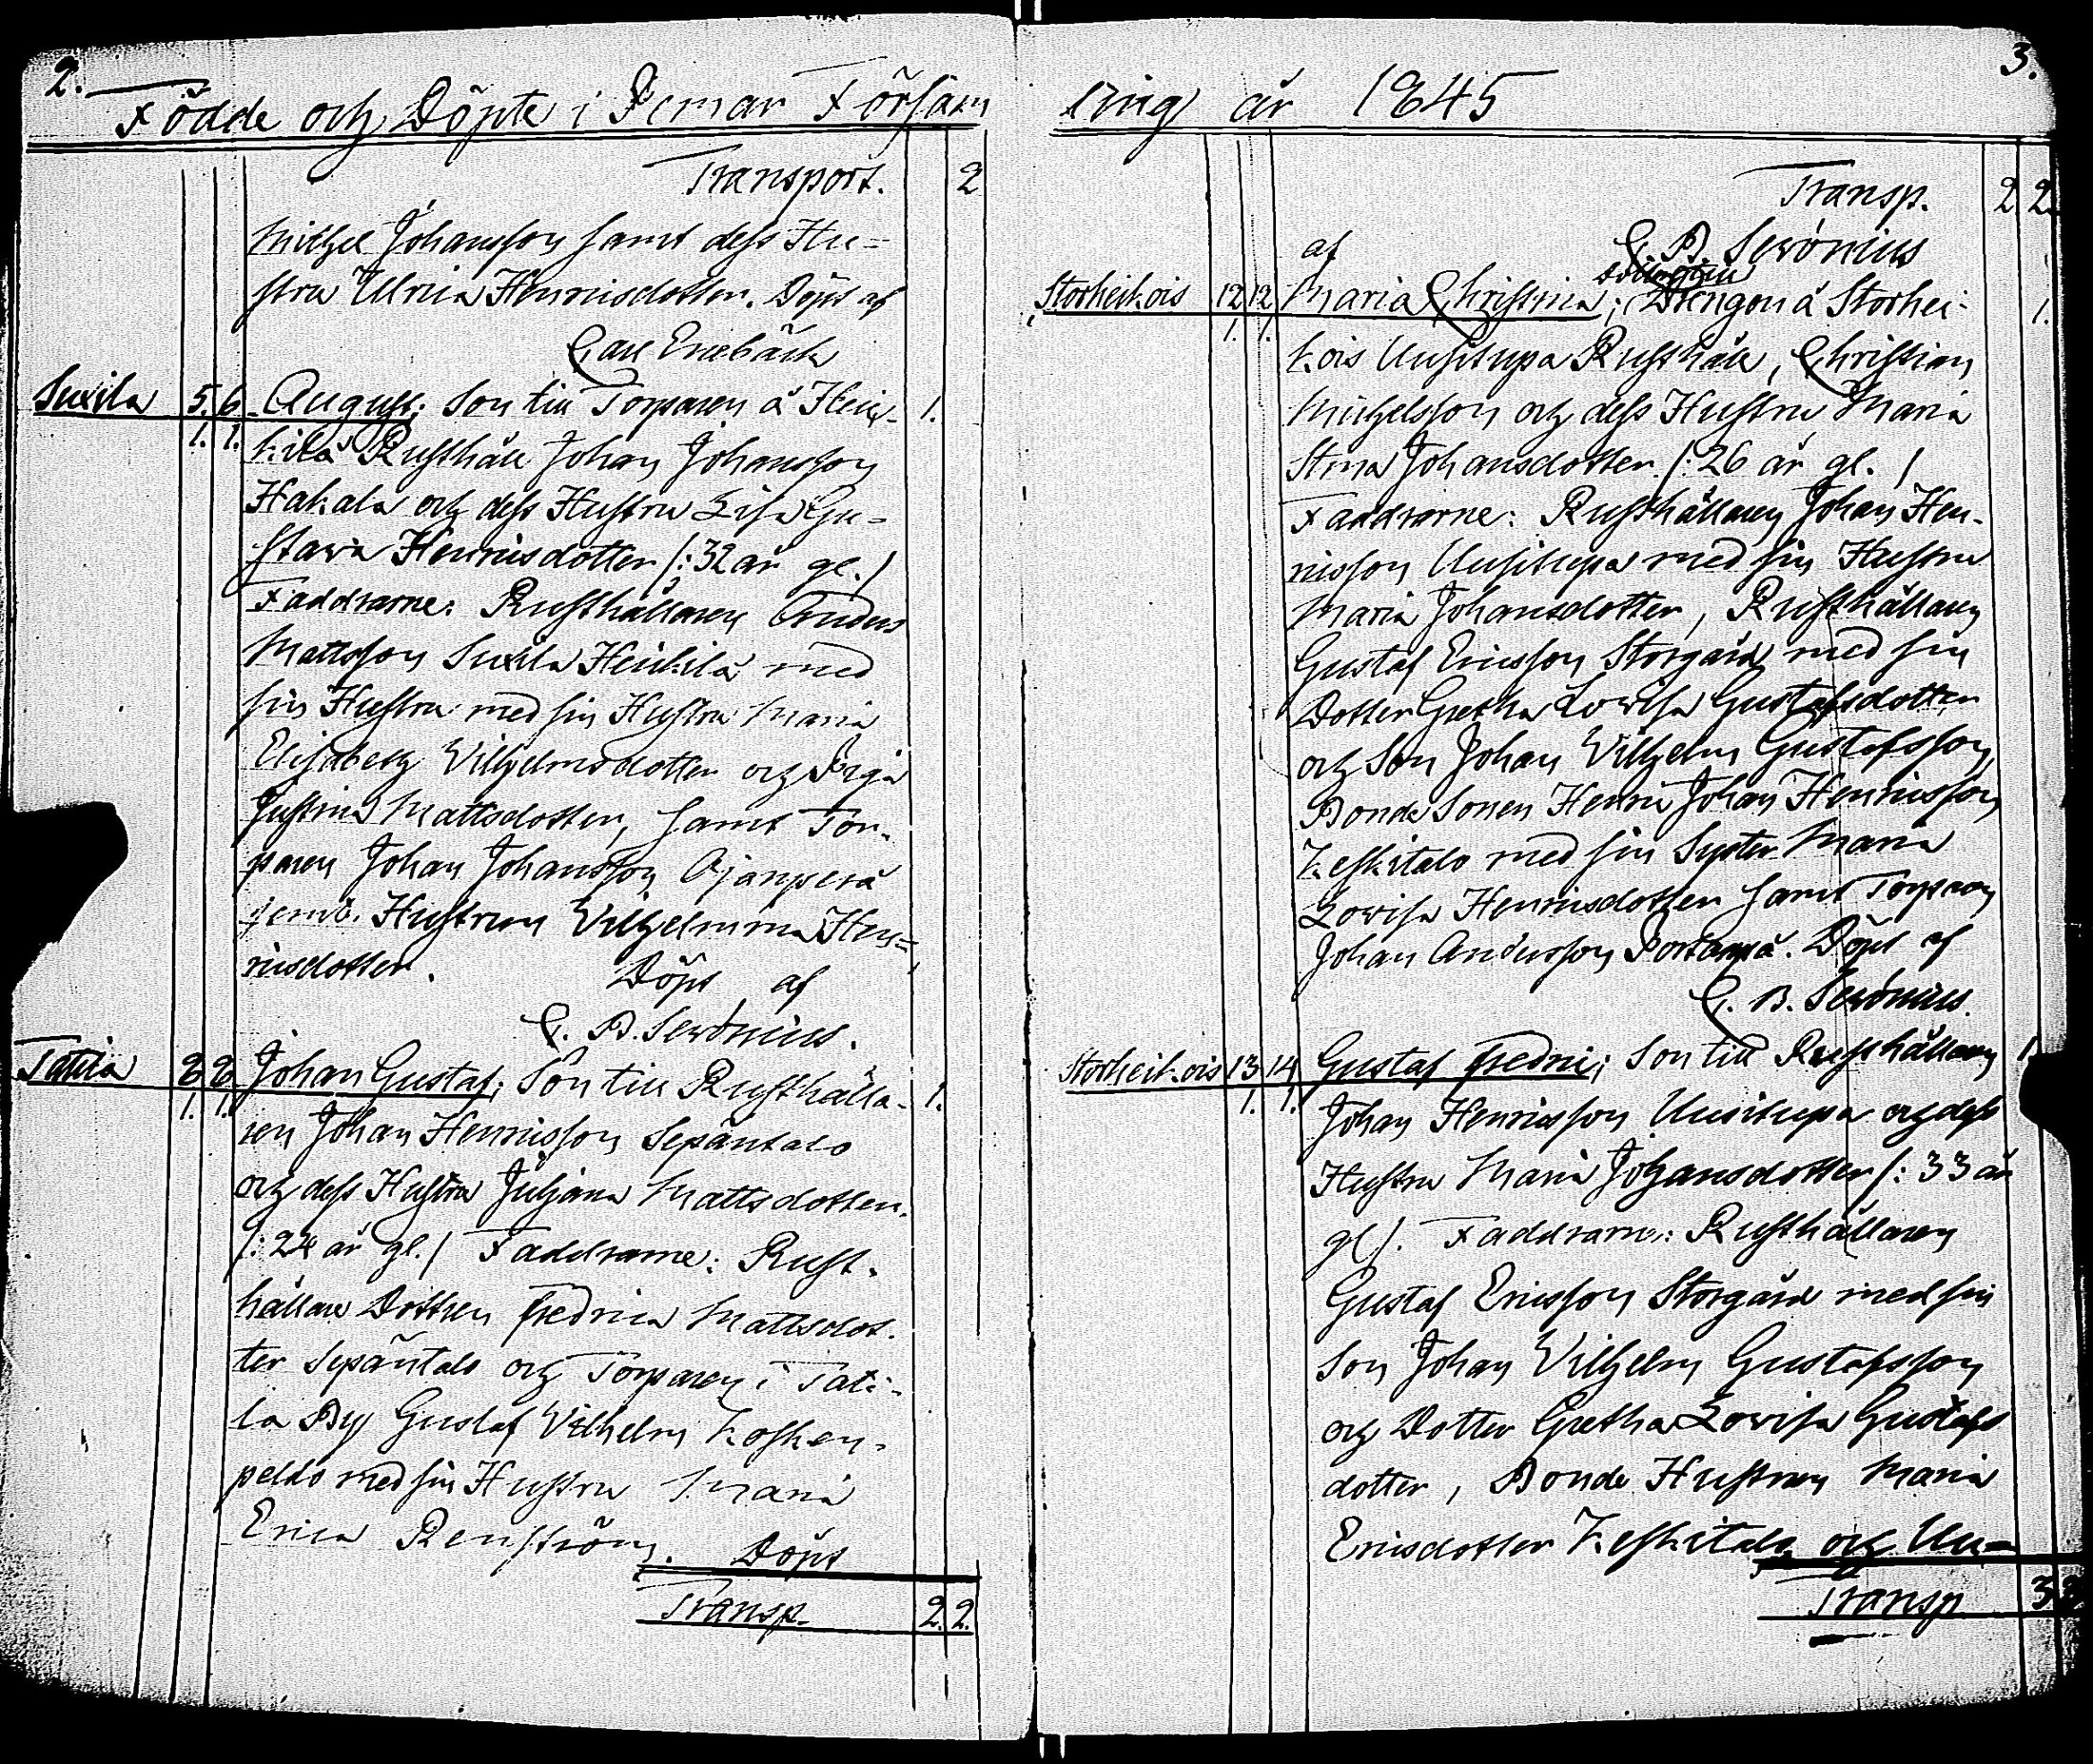 2.
Födde och Döpte i Pemar Församling år 1845
Transport. 2
Michel Johansson samt dess Hu=
stru Ulrica Henricsdotter. Döpt af
Carl Enebäck
Suxila 5. 6. August; Son till Torparen å Heik- 1.
1. 1. kilä Rusthåll Johan Johansson
Hakala och dess Hustru Lisa Gu-
stava Henricsdotter /: 32 år gl. /
Faddrarne: Rusthållaren Anders
Mattsson Suxila Heikilä med
sin Hustru med sin Hustru Maria
Elisabeth Vilhelmsdotter och Pigan
Justina Mattsdotter, samt Tor-
paren Johan Johansson Ojanperä
jemte Hustrun Vilhelmina Hen=
ricsdotter. Döpt af
C. B. Serönius.
Tatila 8 8 Johan Gustaf; Son till Rusthålla- 1.
1. 1. ren Johan Henricsson Sepäntalo
och dess Hustru Juljana Mattsdotter.
/: 24 år gl. / Faddrarne: Rust-
hållare Dottren Fredrica Mattsdot-
ter Sepäntalo och Torparen i Tati-
la By Gustaf Vilhelm Kosken-
pelto med sin Hustru Maria
Erica Renström. Döpt
Transp. 2. 2.
3.
Transp. 2 2.
af C. B. Serönius
Storheikois 12 12 Maria Christina; Drengon å Storhei- 1.
1. 1. kois Uusitupa Rusthåll, Christian
Michelsson och dess Hustru Maria
Stina Johansdotter /: 26 år gl. /
Faddrarne: Rusthållaren Johan Hen-
ricsson Uusitupa med sin Hustru
Maria Johansdotter, Rusthållaren
Gustaf Ericsson Storgård med sin
Dotter Gretha Lovisa Gustafsdotter
och Son Johan Vilhelm Gustafsson,
Bonde Sonen Henric Johan Henricsson
Keskitalo med sin Syster Maria
Lovisa Henricsdotter samt Torparen
Johan Andersson Portanpä. Döpt af
C. B. Serönius.
Storheikois 13 14 Gustaf Fredric; Son till Rusthållaren 1.
1. 1. Johan Henricsson Uusitupa och dess
Hustru Maria Johansdotter /: 33 år
gl /. Faddrarne: Rusthållaren
Gustaf Ericsson Storgård med sin
Son Johan Vilhelm Gustafsson
och Dotter Gretha Lovisa Gustafs
dotter, Bonde Hustrun Maria
Ericsdotter Keskitalo och Un=
Transp 3